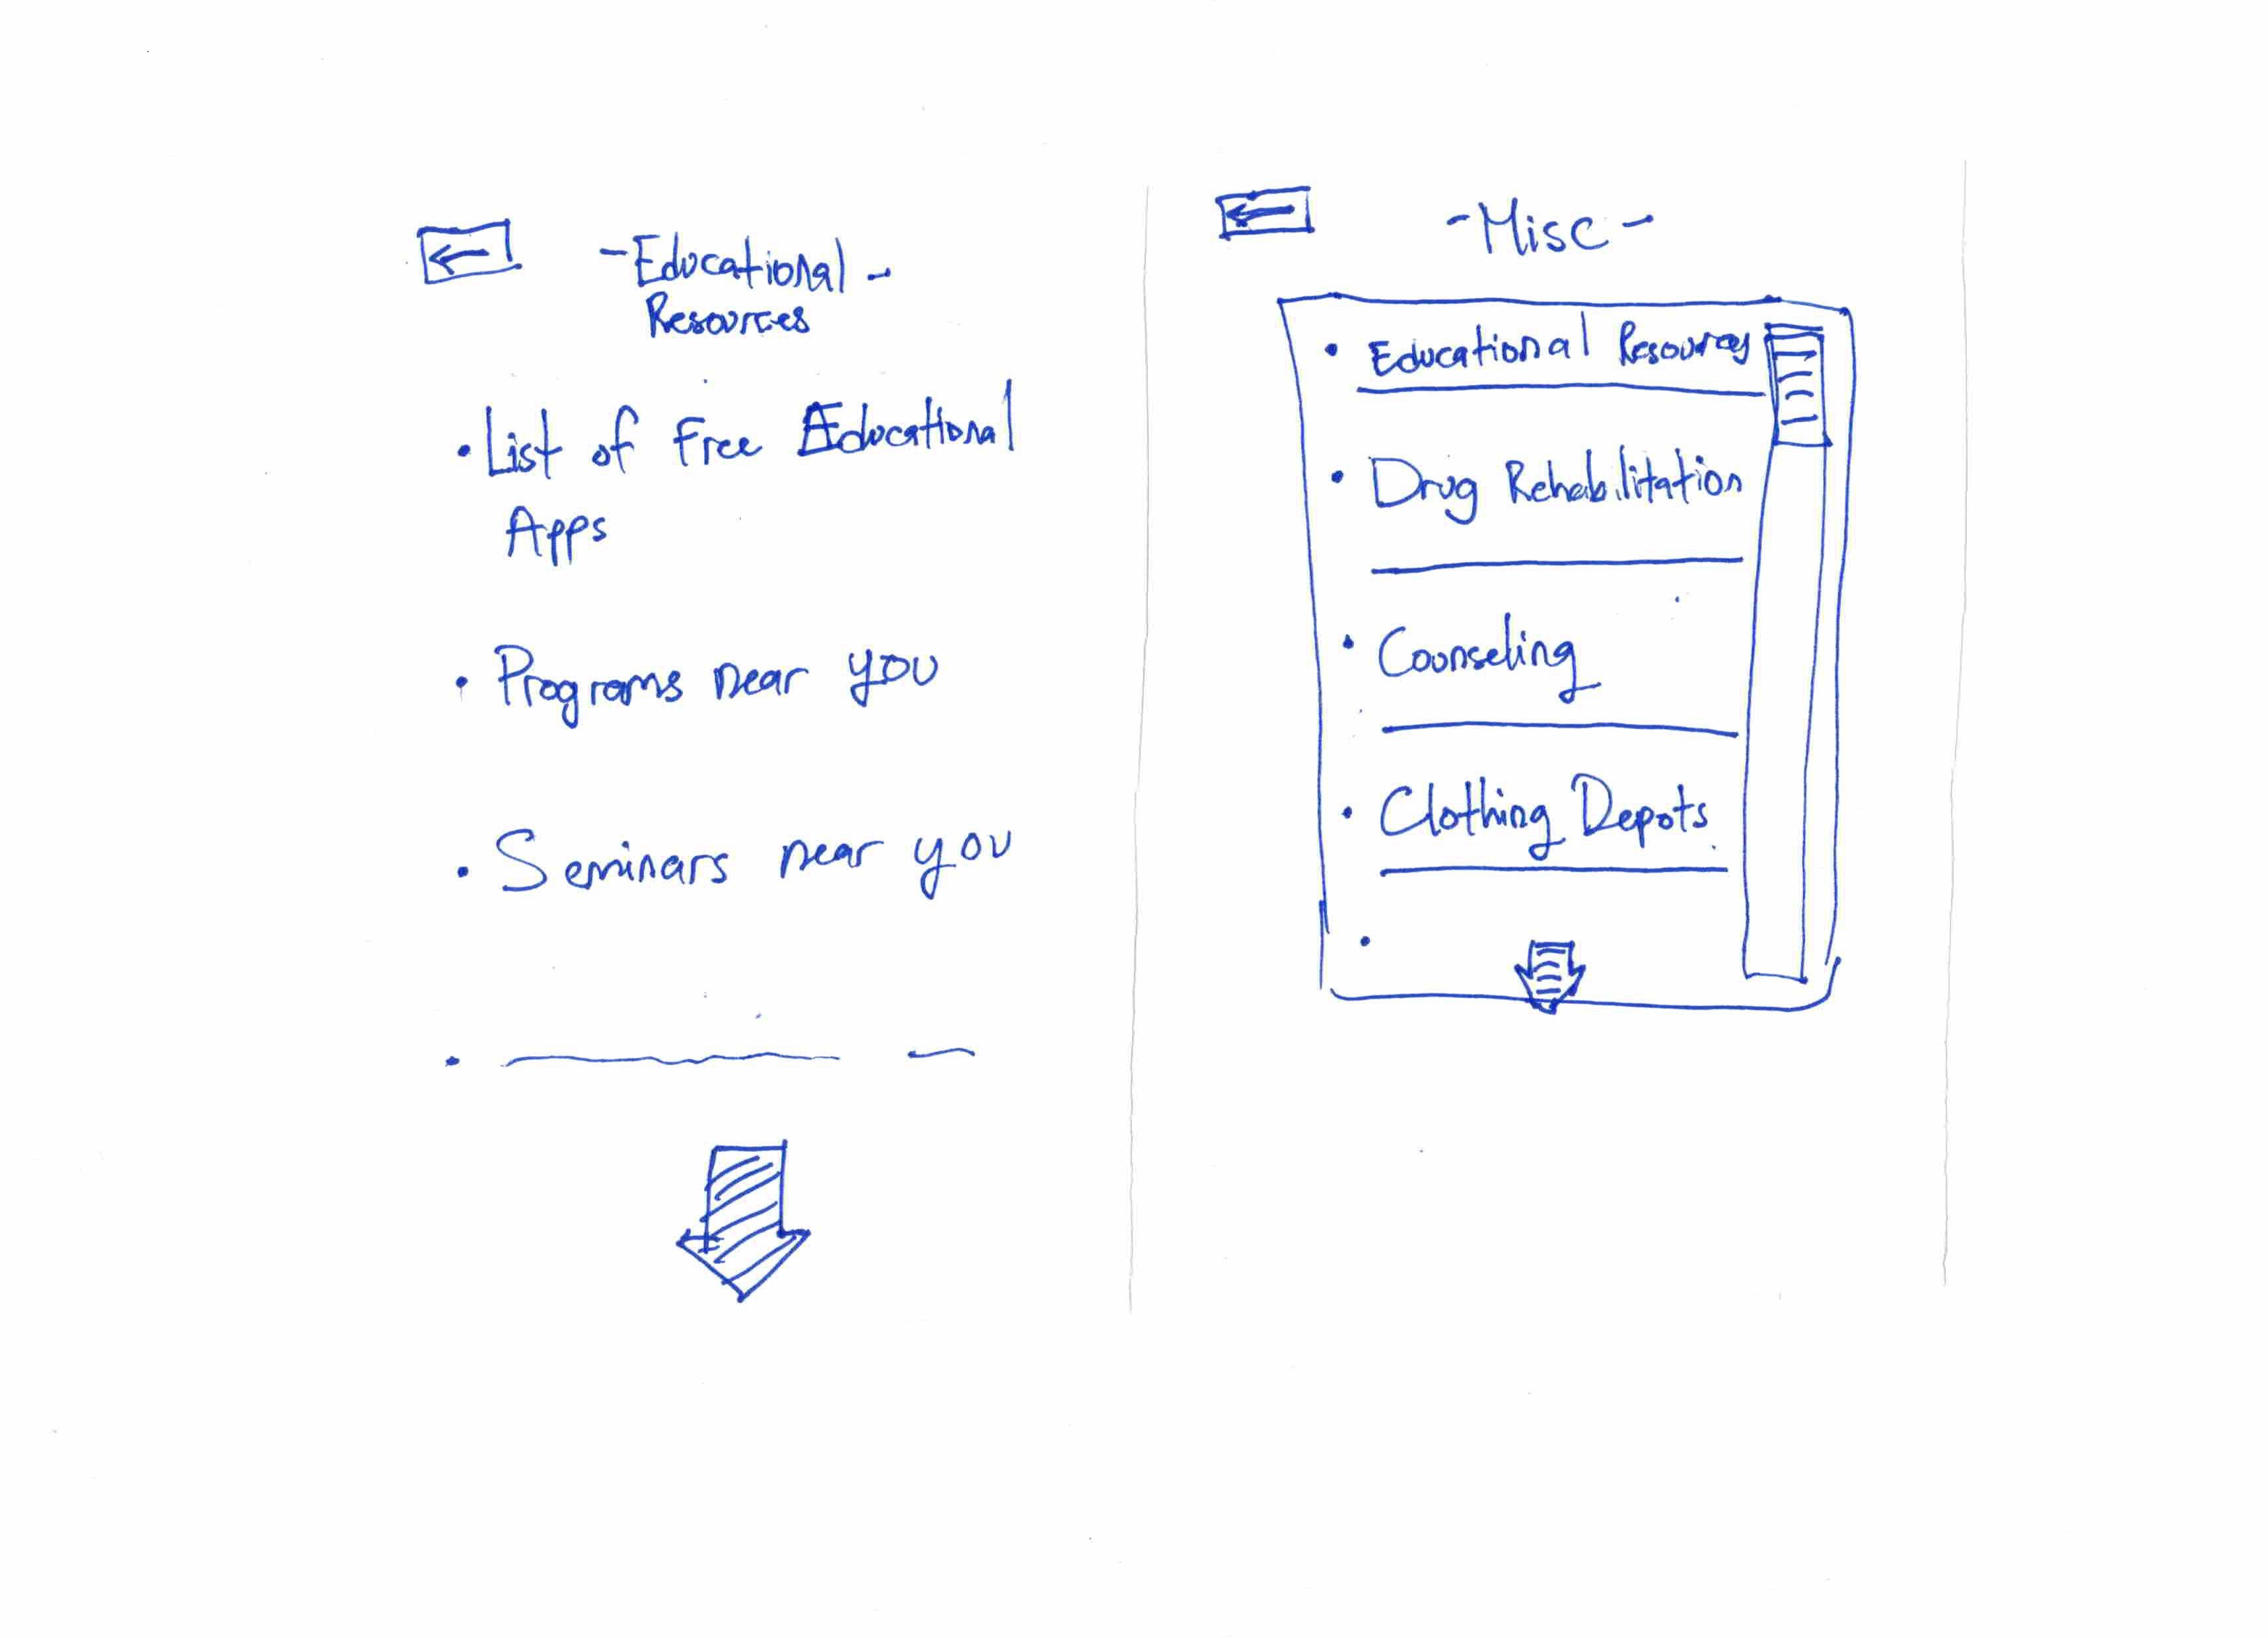 -Educational-
Resources
• List of Free Educational
Apps
• Programs near you
• Seminars near you
-Misc-
• Educational Resources
• Drug Rehabilitation
• Counseling
• Clothing Depots